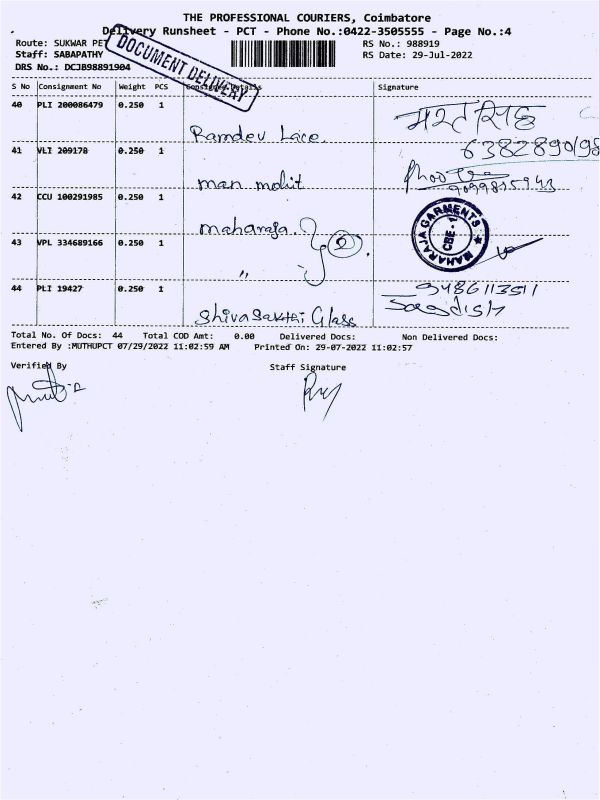 THE PROFESSIONAL COURIERS, Coimbatore
Delivery Runsheet - PCT - Phone No.:0422-3505555 - Page No.:4
Route: SUKWAR PET
RS No.: 988919
Staff: SABAPATHY
RS Date: 29-Jul-2022
DRS No.: DCJB98891904
DOCUMENT DELIVERY
S No Consignment No Weight PCS Consignee Details Signature
40 PLI 200086479 0.250 1
Ramdev Lace.
6382890198
41 VLI 209178 0.250 1
man mohit
9099815943
42 CCU 100291985 0.250 1
maharaja. 2
MAHARAJA GARMENTS
CBE - 1
43 VPL 334689166 0.250 1
"
44 PLI 19427 0.250 1
Shivasakthi Glass
9486113511
Total No. Of Docs: 44 Total COD Amt: 0.00 Delivered Docs: Non Delivered Docs:
Entered By :MUTHUPCT 07/29/2022 11:02:59 AM Printed On: 29-07-2022 11:02:57
Verified By Staff Signature